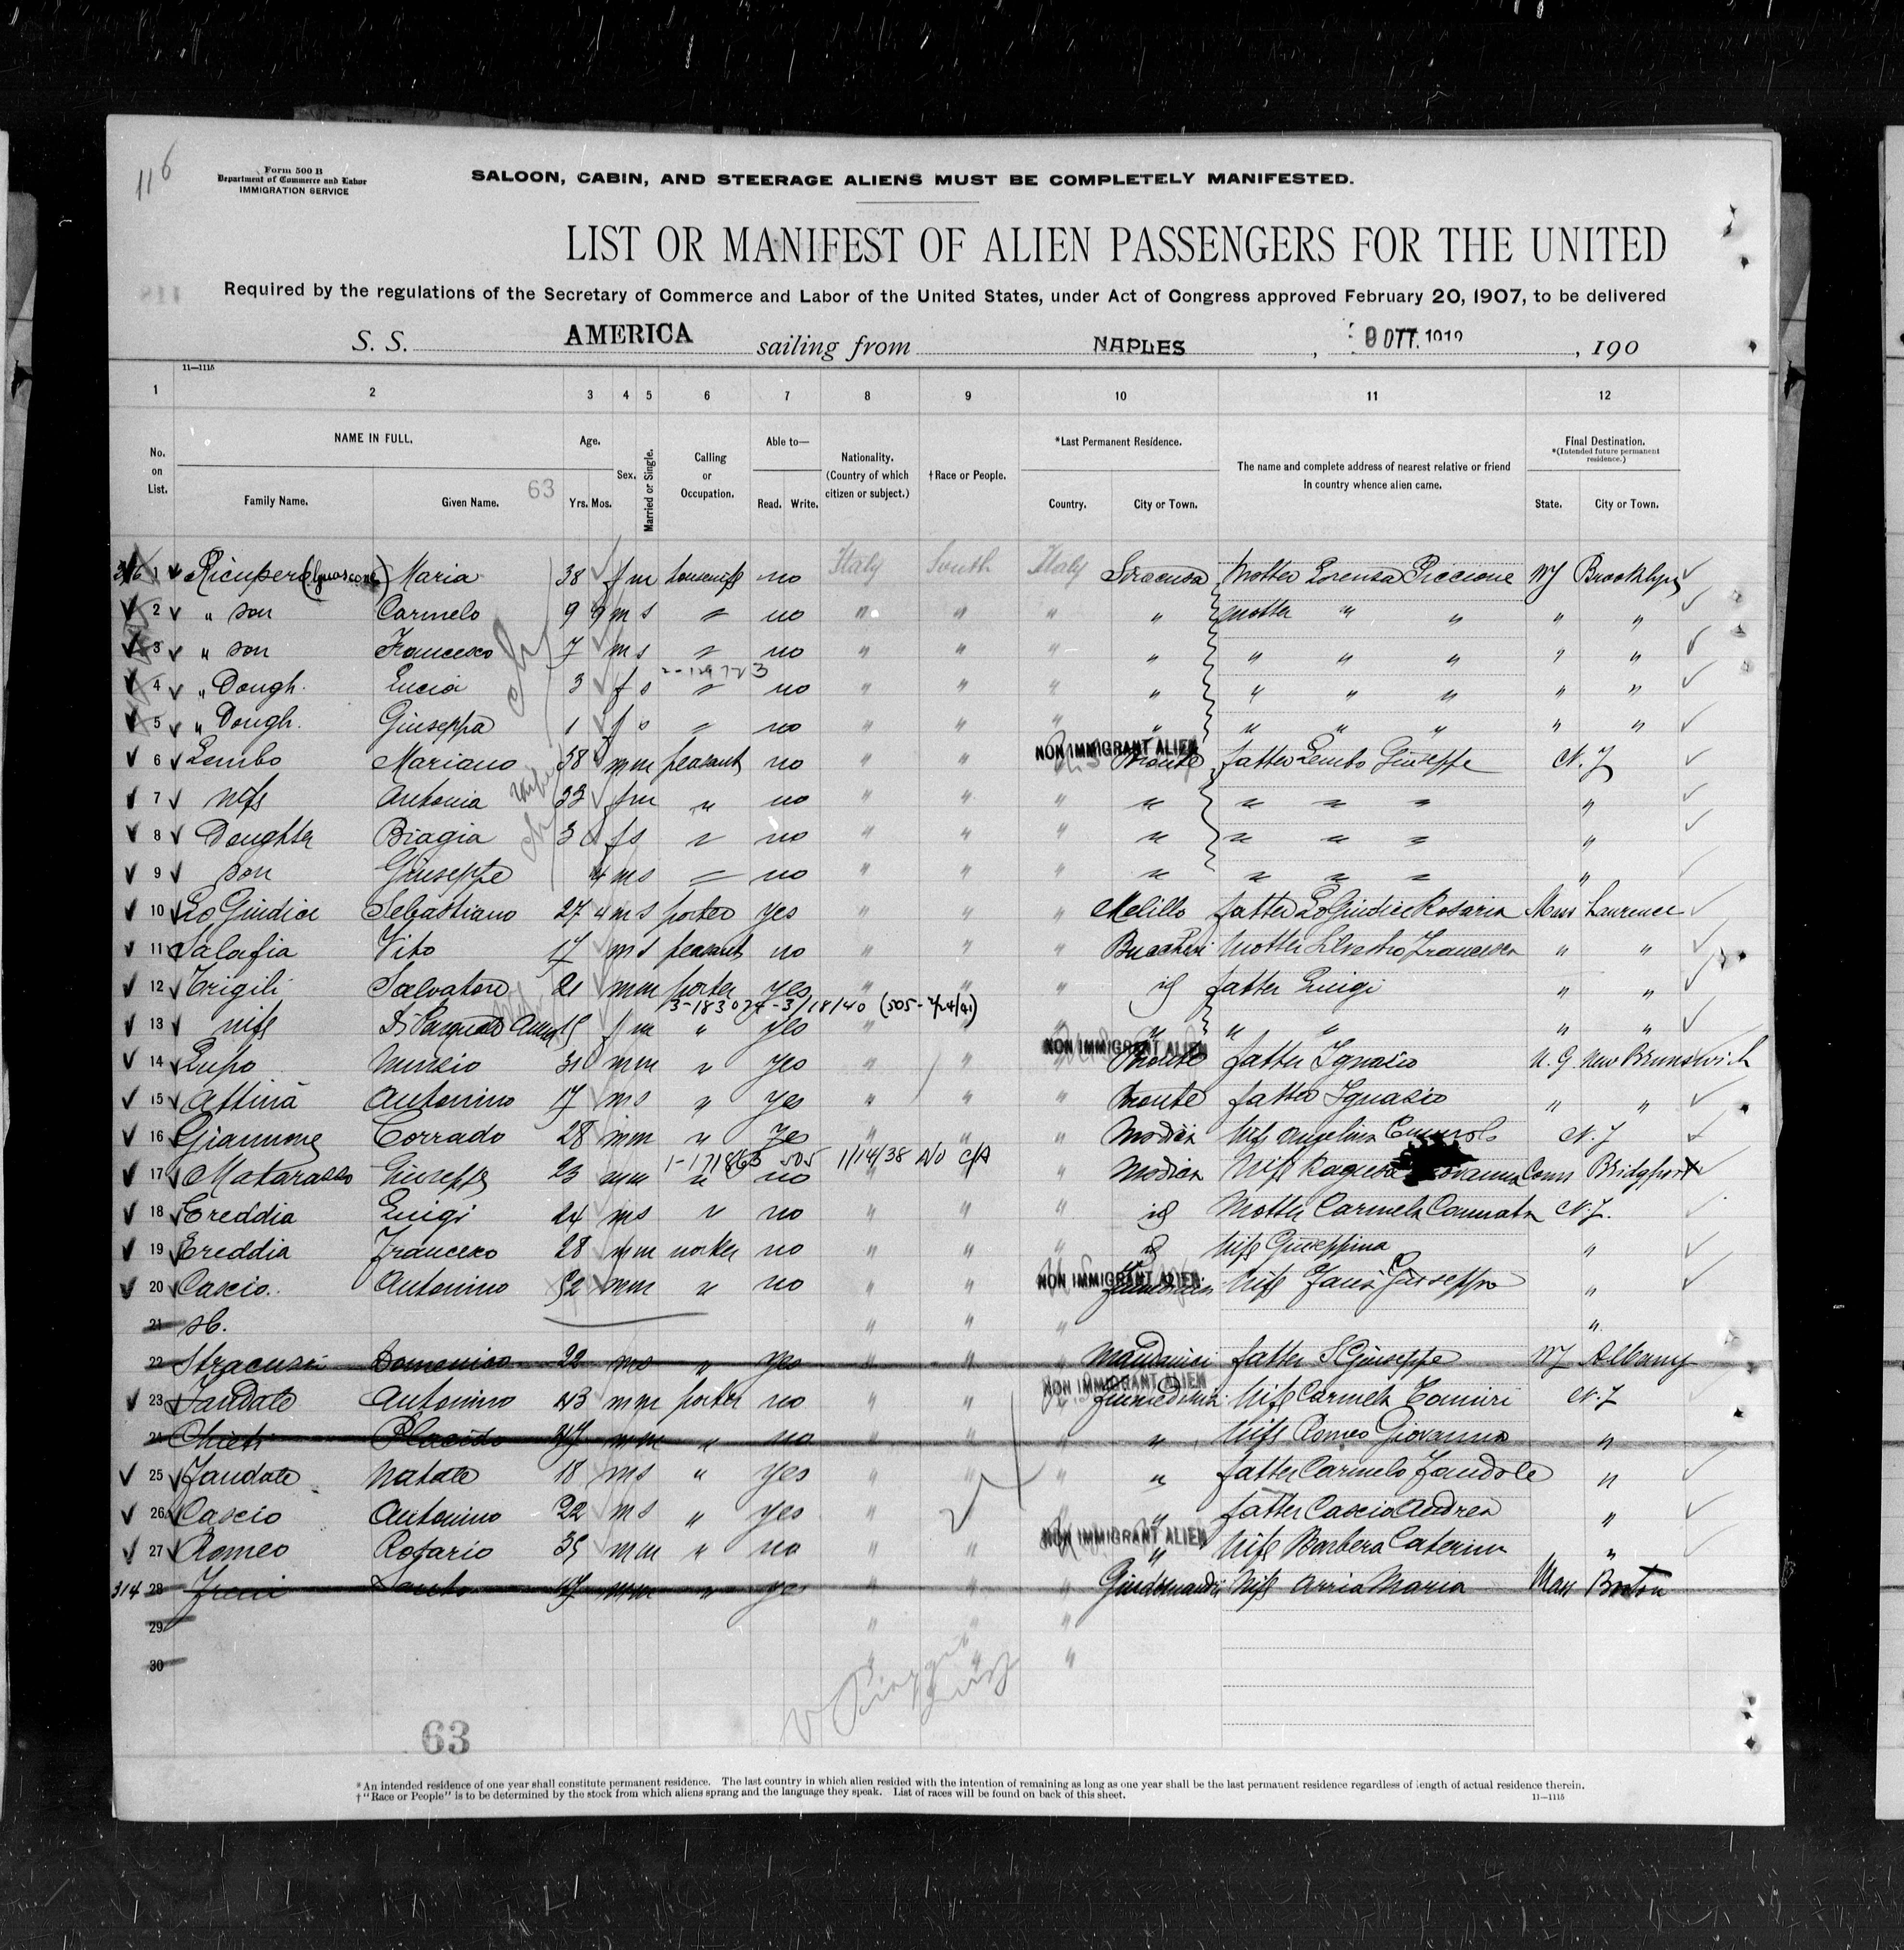 116
Form 500 B
Department of Commerce and Labor
IMMIGRATION SERVICE
SALOON, CABIN, AND STEERAGE ALIENS MUST BE COMPLETELY MANIFESTED.
LIST OR MANIFEST OF ALIEN PASSENGERS FOR THE UNITED
Required by the regulations of the Secretary of Commerce and Labor of the United States, under Act of Congress approved February 20, 1907, to be delivered
S. S. AMERICA sailing from NAPLES, 9 OTT. 1912, 190
11—1115
1 2 3 4 5 6 7 8 9 10 11 12
No. on List.
NAME IN FULL.
Family Name. Given Name.
63
Age.
Yrs. Mos.
Sex.
Married or Single.
Calling or Occupation.
Able to—
Read. Write.
Nationality.
(Country of which citizen or subject.)
†Race or People.
*Last Permanent Residence.
Country. City or Town.
The name and complete address of nearest relative or friend in country whence alien came.
Final Destination.
*(Intended future permanent residence.)
State. City or Town.
1 Ricupero (Guascone) Maria 38 f m housewife no Italy South Italy Siracusa Mother Lorenza Piccione NY Brooklyn
2 " son Carmelo 9 9 m s " no " " " " mother " " " "
3 " son Francesco 7 m s " no " " " " " " " " "
4 " Dough. Lucia 3 f s " no " " " " " " " " "
5 " Dough. Giuseppa 1 f s " no " " " " " " " " "
NON IMMIGRANT ALIEN
6 Lembo Mariano 38 m m peasant no " " " Bronte father Lembo Giuseppe N.J
7 wife Antonia 33 f m " no " " " " " " " "
8 Doughter Biagia 3 f s " no " " " " " " " "
9 son Giuseppe 4 m s " no " " " " " " " "
10 Lo Giudice Sebastiano 27 m s porter yes " " " Melillo father Lo Giudice Rosaria Mass Laurence
11 Salafia Vito 17 m s peasant no " " " Buccheri Mother Silvestro Francesca " "
12 Trigili Salvatore 21 m m porter yes " " " id father Luigi " "
3-183074-3/18/40
13 wife Di Pasquale f m " yes " " " " " " "
NON IMMIGRANT ALIEN
14 Lupo Nunzio 31 m m " yes " " " Bronte father Ignazio New Brunswich
15 Attinà Antonino 17 m s " yes " " " Bronte father Ignazio " "
16 Giannone Corrado 28 m m " yes " " " Modica Wife Angelina N.J
1-171863 505 1/14/38 NO C/A
17 Matarazzo Giuseppe 23 m m " no " Modica Wife Giovanna Conn Bridgport
18 Ereddia Luigi 24 m s " no " " " id Mother Carmela N.J.
19 Ereddia Francesco 28 m m worker no " " " id Wife Giuseppina "
NON IMMIGRANT ALIEN
20 Cascio Antonino 52 m m " no " " Wife Giuseppa "
21 " " " "
22 Siracusa Domenico 22 m s " yes " " " Mandanici father S. Giuseppe NY Albany
NON IMMIGRANT ALIEN
23 Fandale Antonino 43 m m porter no " " " Fiumedinisi Wife Carmela N.J
24 Chieti Placido m m " no " " " " Wife Romeo Giovanna "
25 Fandale Natale 18 m s " yes " " " " father Carmelo Fandole "
26 Cascio Antonino 22 m s " yes " " " " father Cascio Andrea "
NON IMMIGRANT ALIEN
27 Romeo Rosario 35 m m " no " " " Wife Barbera Caterina "
314 28 Freni Santo 47 m m " yes " " " Wife Arria Maria Mass Boston
29 " " "
30 " " "
63
*An intended residence of one year shall constitute permanent residence. The last country in which alien resided with the intention of remaining as long as one year shall be the last permanent residence regardless of length of actual residence therein.
†"Race or People" is to be determined by the stock from which aliens sprang and the language they speak. List of races will be found on back of this sheet.
11—1115